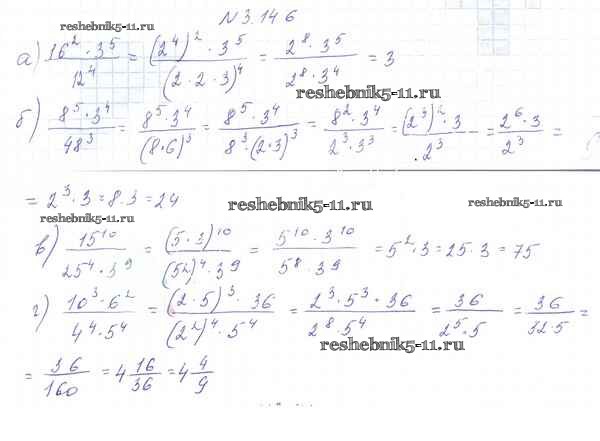 N 3.146
reshebnik5-11.ru
а) 16² · 3⁵ / 12⁴ = (2⁴)² · 3⁵ / (2 · 2 · 3)⁴ = 2⁸ · 3⁵ / 2⁸ · 3⁴ = 3
reshebnik5-11.ru
б) 8⁵ · 3⁴ / 48³ = 8⁵ · 3⁴ / (8·6)³ = 8⁵ · 3⁴ / 8³ · (2·3)³ = 8² · 3⁴ / 2³ · 3³ = (2³)² · 3 / 2³ = 2⁶ · 3 / 2³ =
= 2³ · 3 = 8 · 3 = 24
reshebnik5-11.ru
reshebnik5-11.ru
reshebnik5-11.ru
в) 15¹⁰ / 25⁴ · 3⁹ = (5 · 3)¹⁰ / (5²)⁴ · 3⁹ = 5¹⁰ · 3¹⁰ / 5⁸ · 3⁹ = 5² · 3 = 25 · 3 = 75
г) 10³ · 6² / 4⁴ · 5⁴ = (2 · 5)³ · 36 / (2²)⁴ · 5⁴ = 2³ · 5³ · 36 / 2⁸ · 5⁴ = 36 / 2⁵ · 5 = 36 / 32 · 5 =
reshebnik5-11.ru
= 36 / 160 = 4 16/36 = 4 4/9